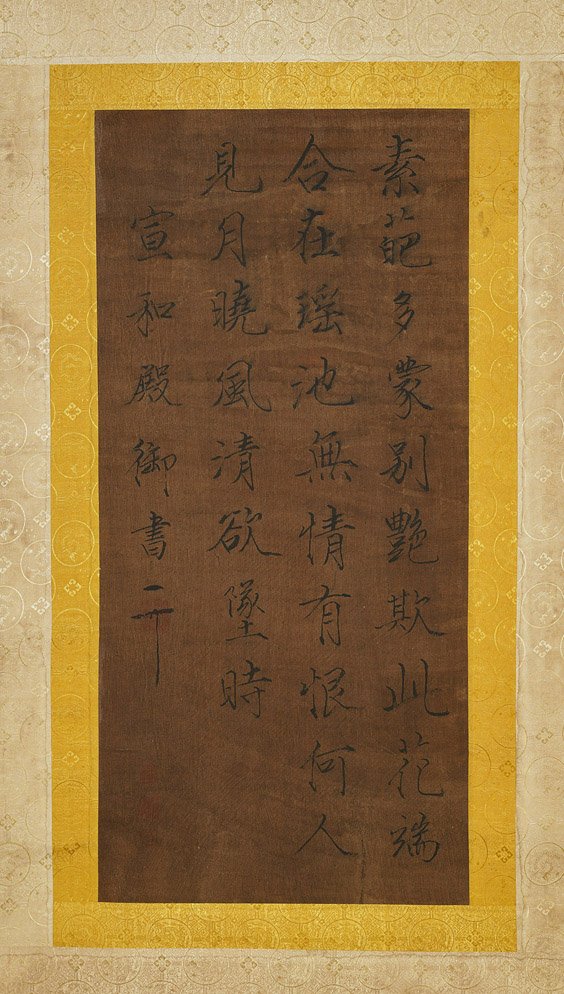 素葩多蒙別艷欺此花端
合在瑤池無情有恨何人
見月曉風清欲墜時
宣和殿御書